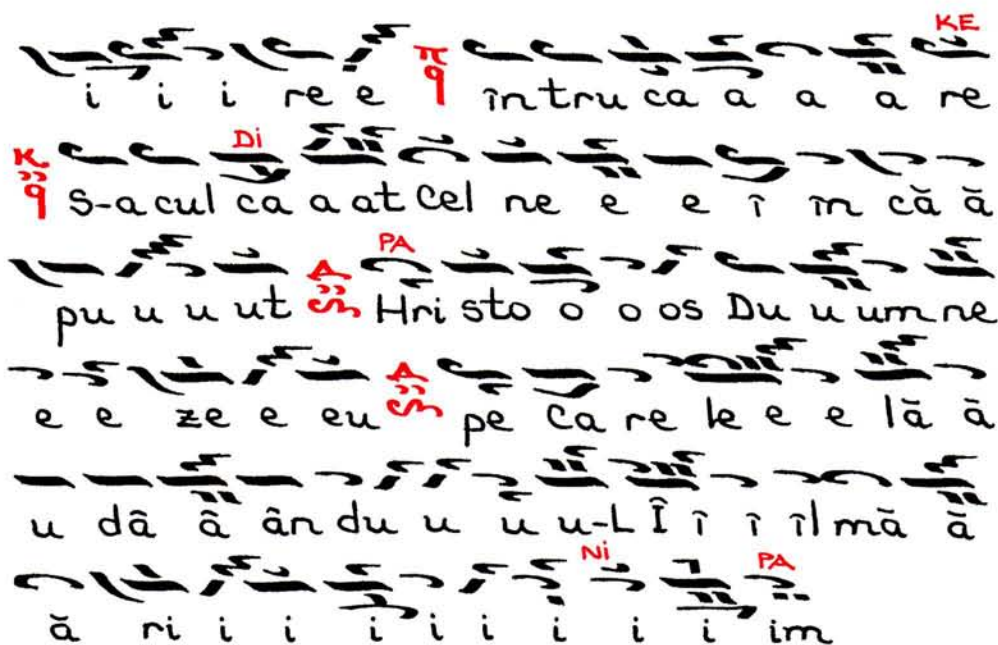 KE
i i i re e π q în tru ca a a a re
Di
K q S-a cul ca a at Cel ne e e î în că ă
PA
pu u u ut Δ Hri sto o o os Du u um ne
e e ze e eu Δ pe Ca re le e e lă ă
u dâ â ân du u u u-L Î î î îl mă ă
Ni PA
ă ri i i i i i i i i im